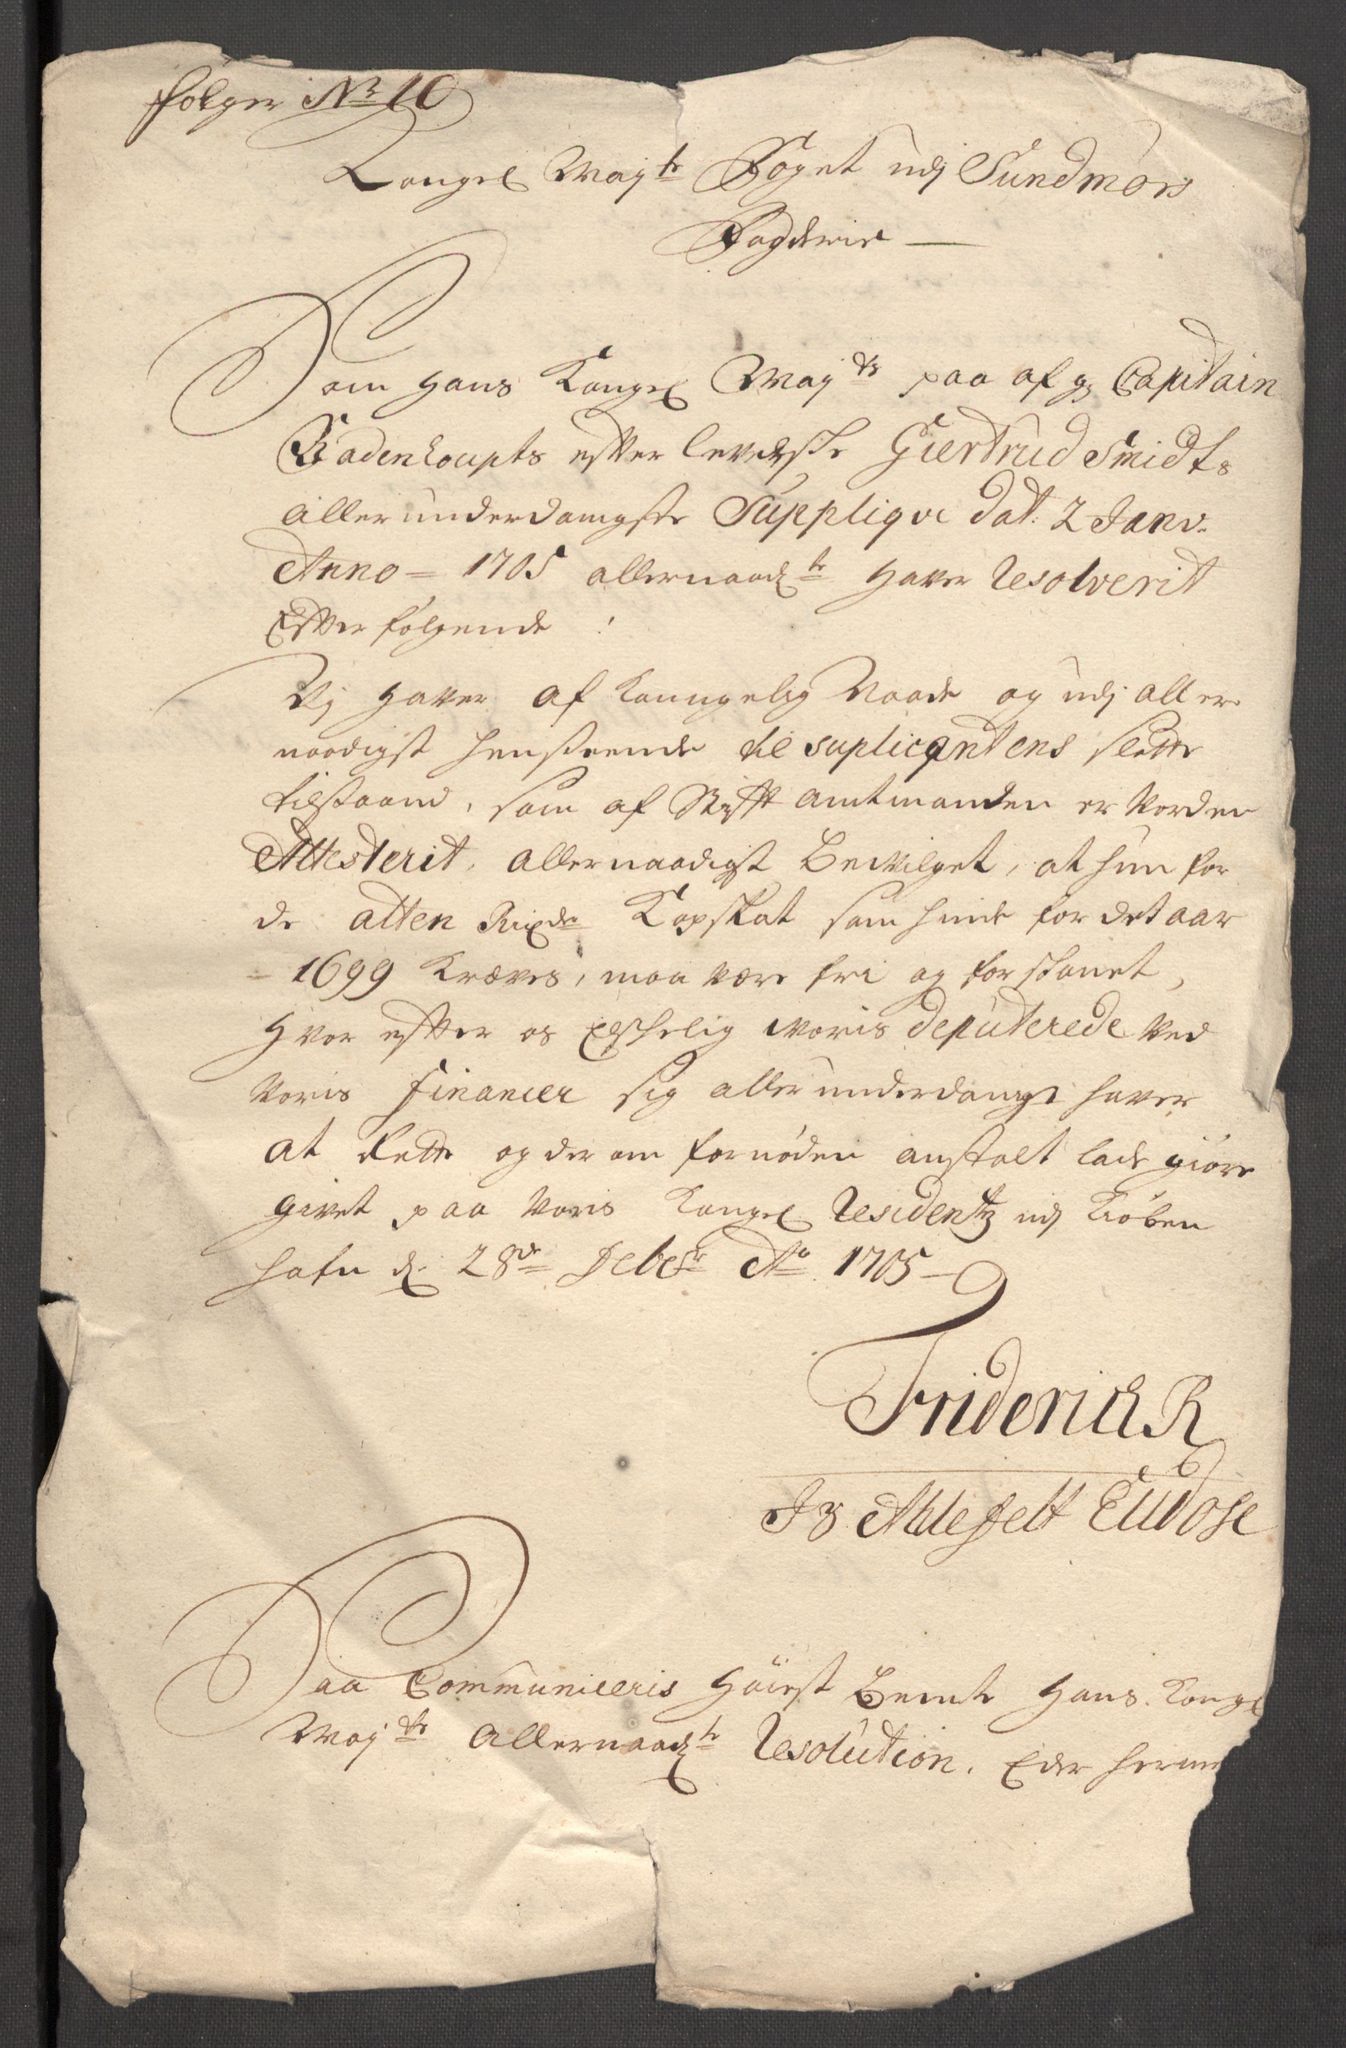 Følger No 10
Kongel Mayts Foget udj Sundmørs
Fogderie
Som Hans Kongel Mayts paa afg Capitain
Badenhoupts efterleverske Giertrud Smidts
allerunderdanigste Supplique dat: 2 Janv.
Anno = 1705 allernaadt haver Resolverit
Efterfølgende :
Vj haver af Kongelig Naade og udj aller
naadigst henseende til suplicantens slette
tilstand, som af Stifft amtmanden er vorden
Attesterit, allernaadigst bevilget, at hun for
de atten Rixdr Kopskat som hinde for det aar
= 1699 Kræves, maa være fri og forskaanet,
Hvor efter os Elskelig voris deputerede ved
voris Financer sig allerunderdanigst haver
at rette og der om fornøden anstalt lade giøre
givet paa voris Kongel Residentz udj Kiøben
hafn d. 28de Febr Ao 1705
Friderich R
J B Ahlefelt Eudose
Saa Communiceris Høist bemte Hans Kongl
Mayts Allernaadt Resolution, Eder herm